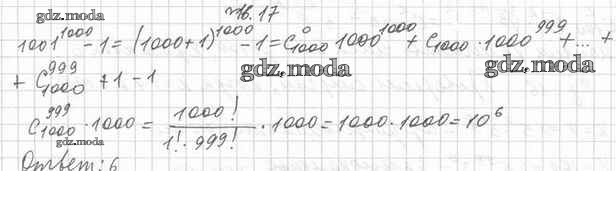 gdz.moda
№16.17
1001^1000 - 1 = (1000+1)^1000 - 1 = C^0_1000 1000^1000 + C_1000 · 1000^999 + ... +
gdz.moda
gdz.moda
+ C^999_1000 + 1 - 1
C^999_1000 · 1000 = 1000! / 1! · 999! · 1000 = 1000 · 1000 = 10^6
gdz.moda
Ответ: 6